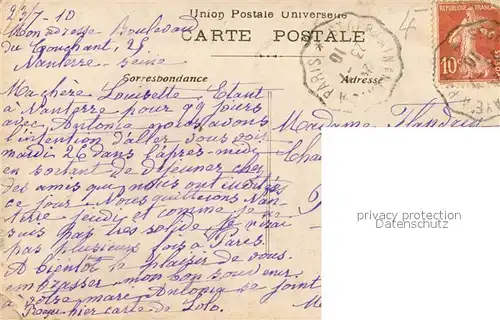 23/7-10
Union Postale Universelle
Mon adresse Boulevard
CARTE POSTALE
du Couchant, 25,
Nanterre - Seine
10c
PARIS
Correspondance
Adresse
Ma chère Louisette Etant
à Nanterre pour 99 jours
avec Antonia nous avons
l'intention d'aller vous voir
mardi 26 dans l'après-midi
en sortant de déjeuner chez
des amis qui nous ont invités
ce jour. Nous quitterons Nan-
terre jeudi et comme je
suis pas très solide je n'irai
pas plusieurs fois à Paris.
A bientôt le plaisir de vous
embrasser mon bon souvenir
à votre mari Antonia se joint
hier carte de Lolo.
Madame Flandrin
privacy protection
Datenschutz